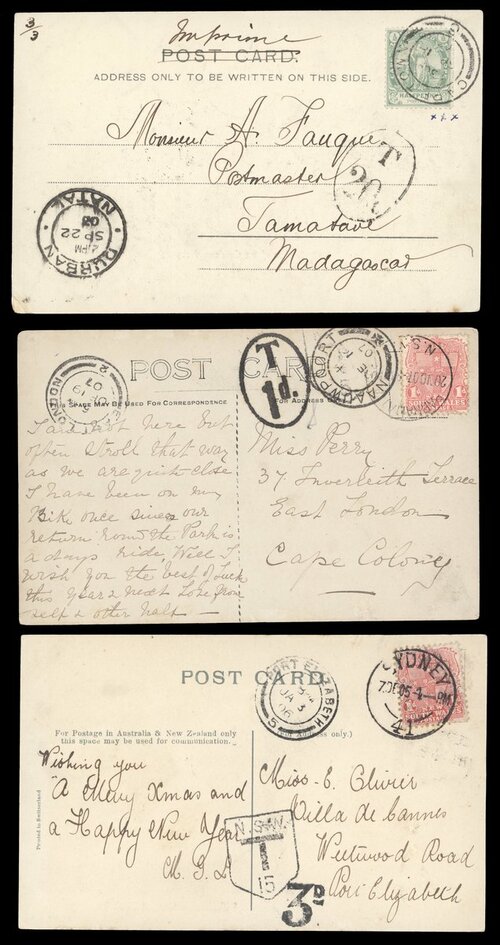 3/3
Imprimé
POST CARD.
ADDRESS ONLY TO BE WRITTEN ON THIS SIDE.
HALFPENNY
xxx
Monsieur A. Fauque
Postmaster
Tamatave
Madagascar
T
20c
DURBAN NATAL
4 PM
SP 22
03
POST CARD
THIS SPACE MAY BE USED FOR CORRESPONDENCE.
FOR ADDRESS
T
1d.
NAAUWPOORT
N.S.W
EAST LONDON
07
I am not here but
often stroll that way
as we are quite close
I have been on my
Bike once since our
return round the Park is
a days ride, Well I
wish you the best of luck
this year & next Love from
self & other half —
Miss Perry
37 Inverleith Terrace
East London
Cape Colony
POST CARD
For Postage in Australia & New Zealand only
this space may be used for communication.
only.)
Printed in Switzerland
PORT ELIZABETH
JA 3
06
SYDNEY
7 DE 05 4 - PM
41
Wishing you
"A Merry Xmas and
a Happy New Year
Miss E. Clivier
Villa de Cannes
Westwood Road
Port Elizabeth
N.S.W.
T
3D